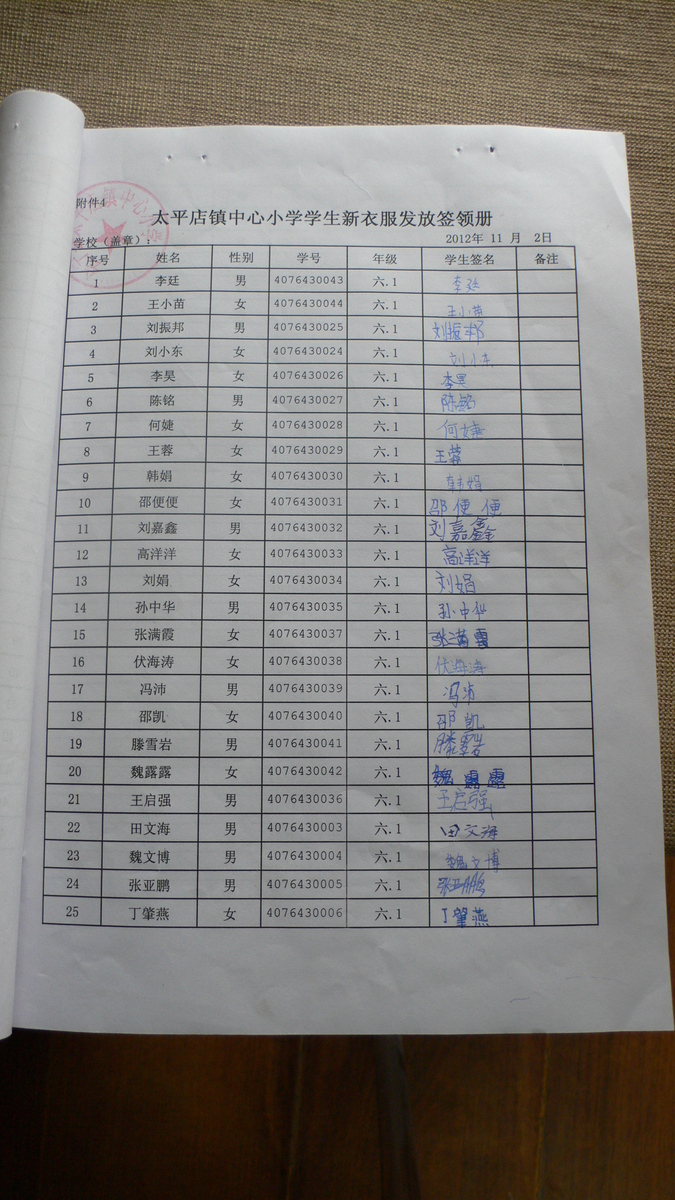 附件4
太平店镇中心小学学生新衣服发放签领册
学校(盖章): 2012年 11 月 2日
序号 姓名 性别 学号 年级 学生签名 备注
1 李廷 男 4076430043 六.1 李廷
2 王小苗 女 4076430044 六.1 王小苗
3 刘振邦 男 4076430025 六.1 刘振邦
4 刘小东 女 4076430024 六.1 刘小东
5 李昊 女 4076430026 六.1 李昊
6 陈铭 男 4076430027 六.1 陈铭
7 何婕 女 4076430028 六.1 何婕
8 王蓉 女 4076430029 六.1 王蓉
9 韩娟 女 4076430030 六.1 韩娟
10 邵便便 女 4076430031 六.1 邵便便
11 刘嘉鑫 男 4076430032 六.1 刘嘉鑫
12 高洋洋 女 4076430033 六.1 高洋洋
13 刘娟 女 4076430034 六.1 刘娟
14 孙中华 男 4076430035 六.1 孙中华
15 张满霞 女 4076430037 六.1 张满霞
16 伏海涛 女 4076430038 六.1 伏海涛
17 冯沛 男 4076430039 六.1 冯沛
18 邵凯 女 4076430040 六.1 邵凯
19 滕雪岩 男 4076430041 六.1 滕雪岩
20 魏露露 女 4076430042 六.1 魏露露
21 王启强 男 4076430036 六.1 王启强
22 田文海 男 4076430003 六.1 田文海
23 魏文博 男 4076430004 六.1 魏文博
24 张亚鹏 男 4076430005 六.1 张亚鹏
25 丁肇燕 女 4076430006 六.1 丁肇燕